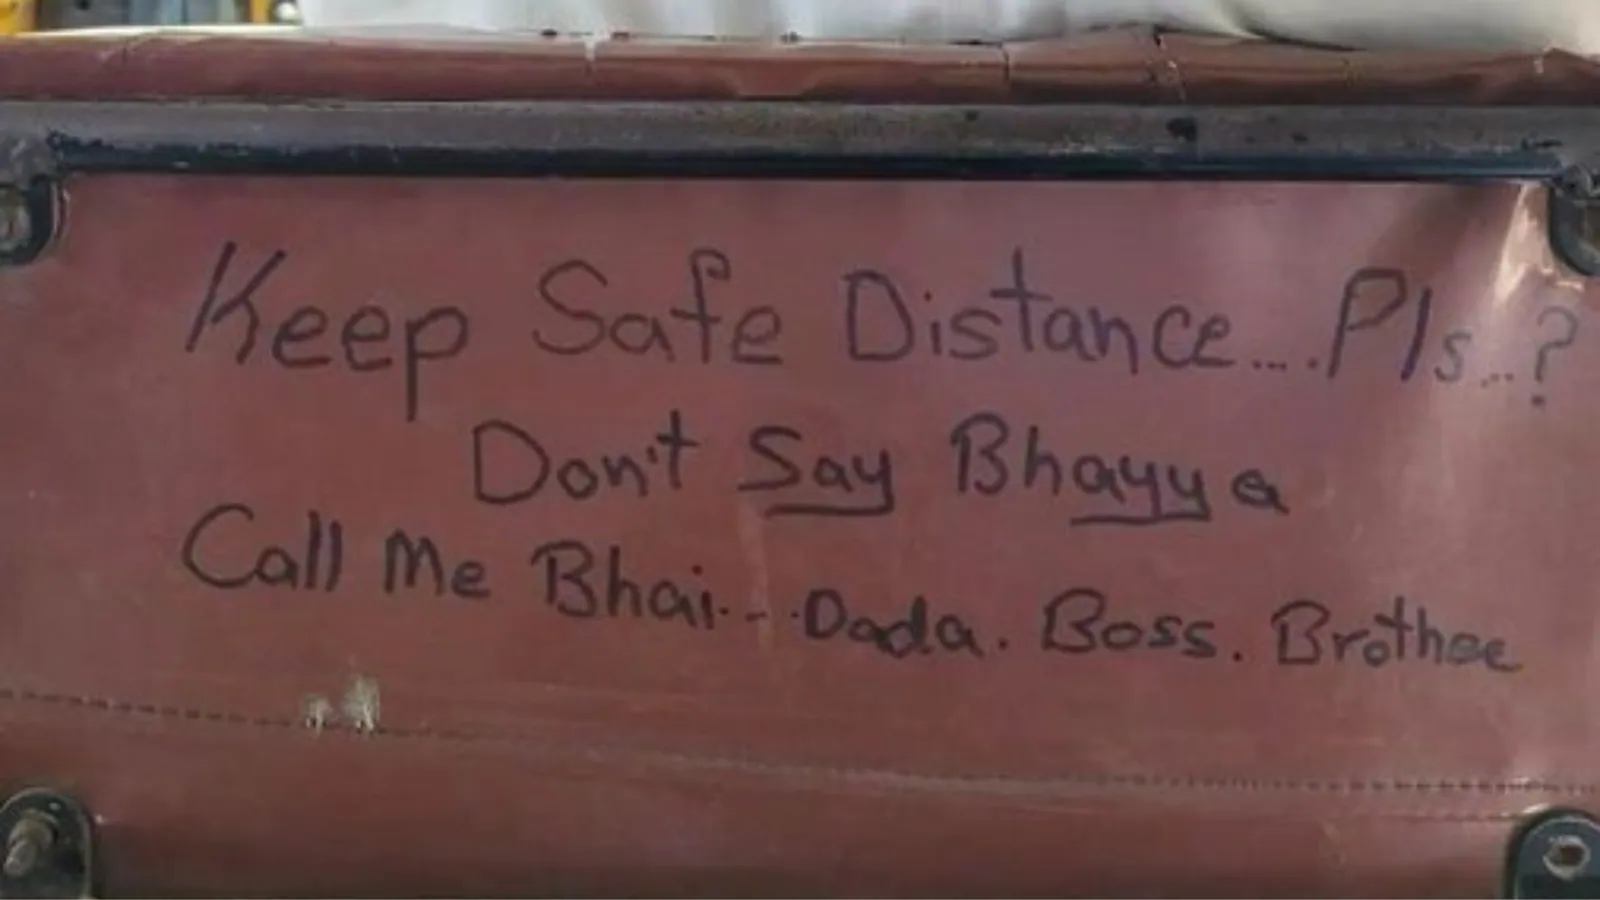 Keep Safe Distance....Pls...?
Don't Say Bhayya
Call Me Bhai... Dada. Boss. Brother